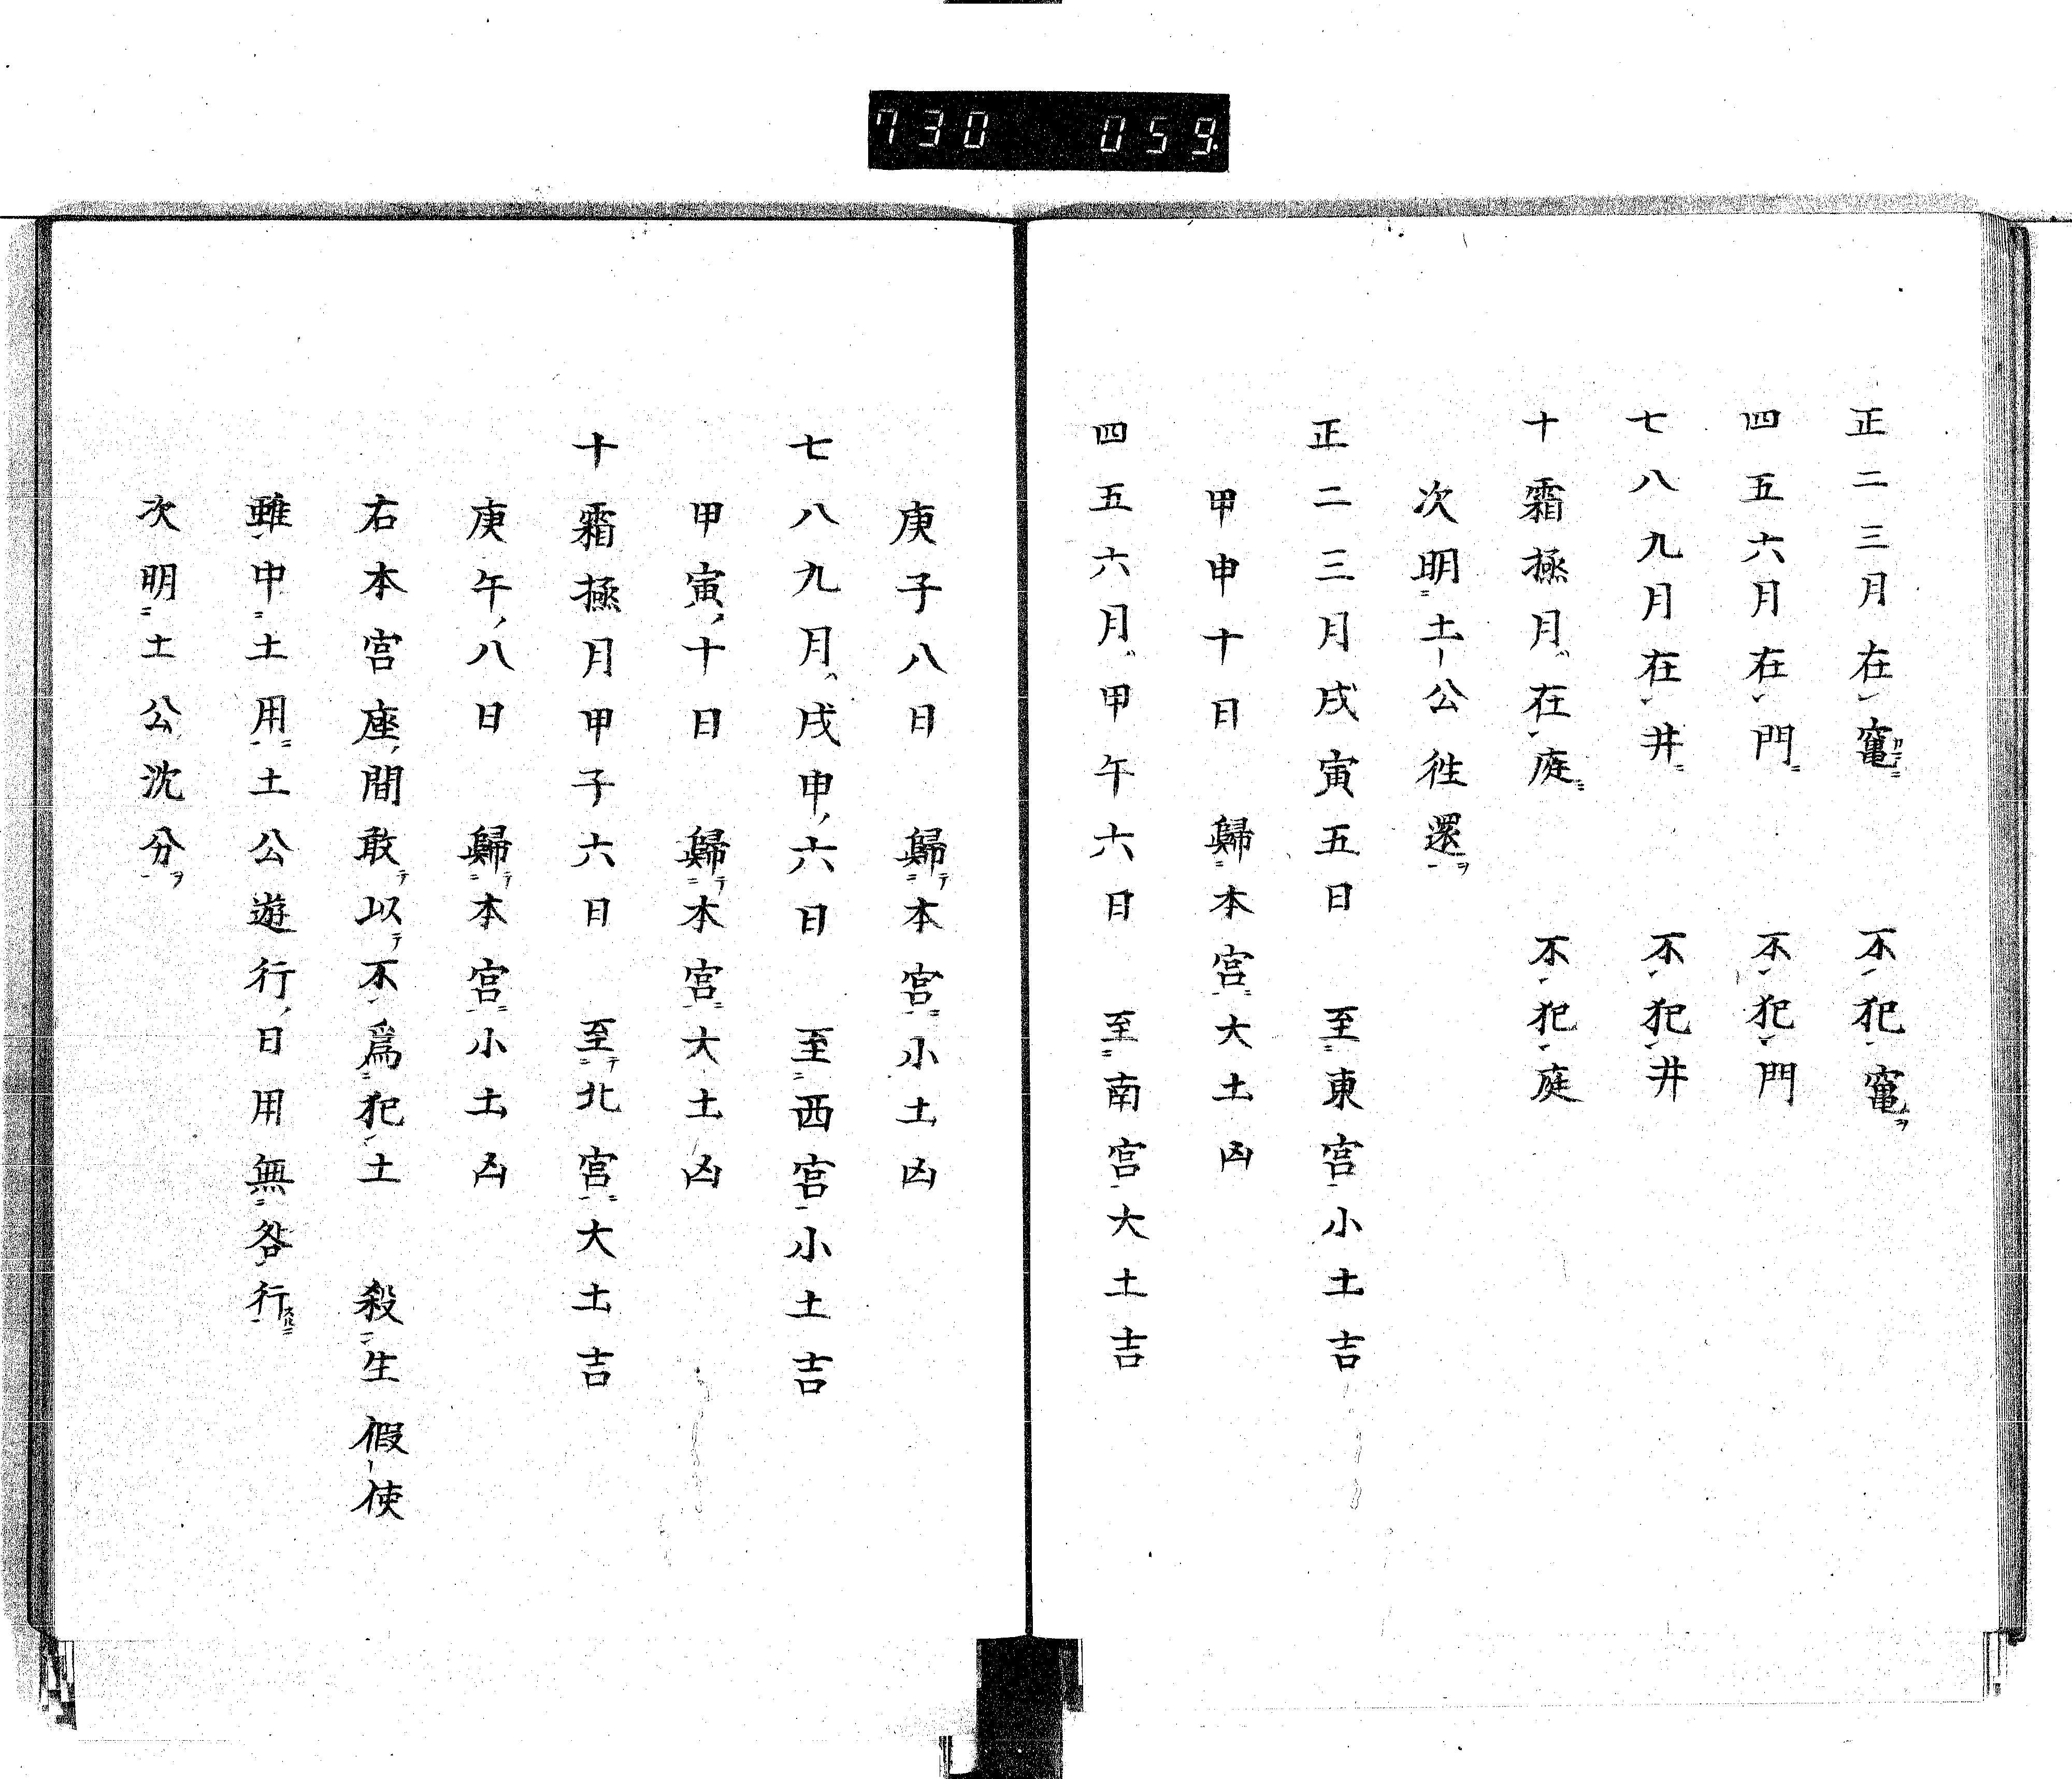 730 059.
正二三月在竃 不犯竃
四五六月在門 不犯門
七八九月在井 不犯井
十霜極月在庭 不犯庭
次明土公徃還
正二三月戌寅五日 至東宮小土吉
甲申十日 歸本宮大土凶
四五六月甲午六日 至南宮大土吉
庚子八日 歸本宮小土凶
七八九月戌申六日 至西宮小土吉
甲寅十日 歸本宮大土凶
十霜極月甲子六日 至北宮大土吉
庚午八日 歸本宮小土凶
右本宮座間敢以不爲犯土 殺生 假使
雖中土用土公遊行日用無咎行
次明土公沈分